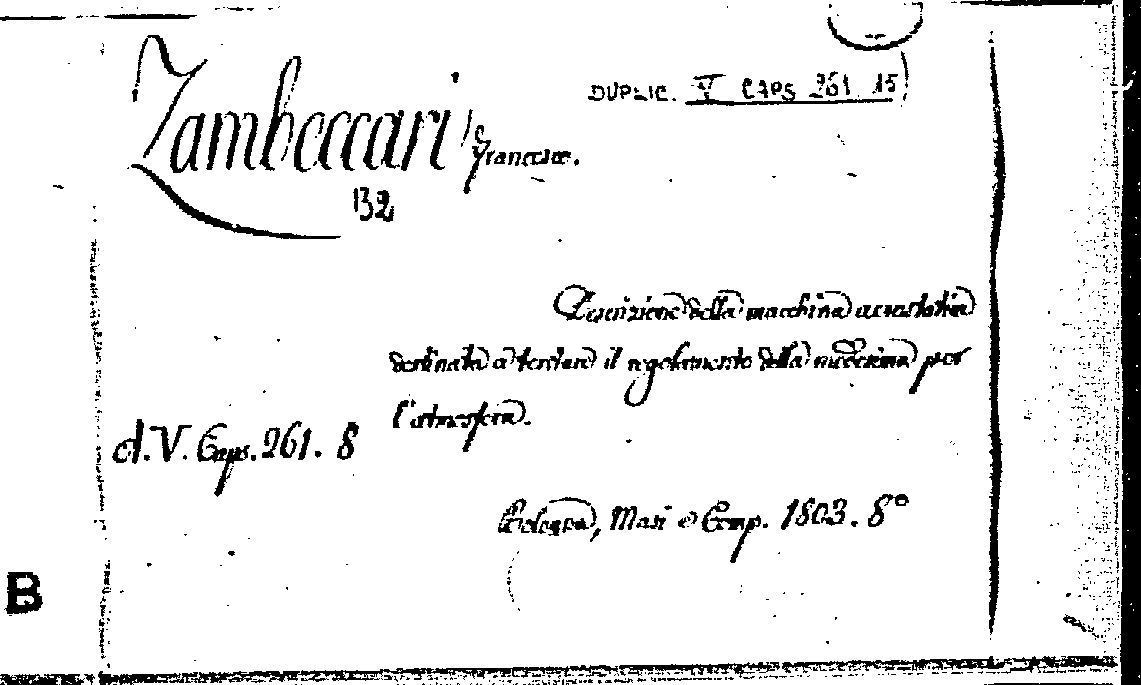 DUPLIC. V CAPS 261 15
Zambeccari Francesco.
B2
Descrizione della macchina aerostatica
destinata a tentare il regolamento della medesima per
l'atmosfera.
A.V. Caps. 261. 8
Bologna, Masi e Comp. 1803. 8°
B